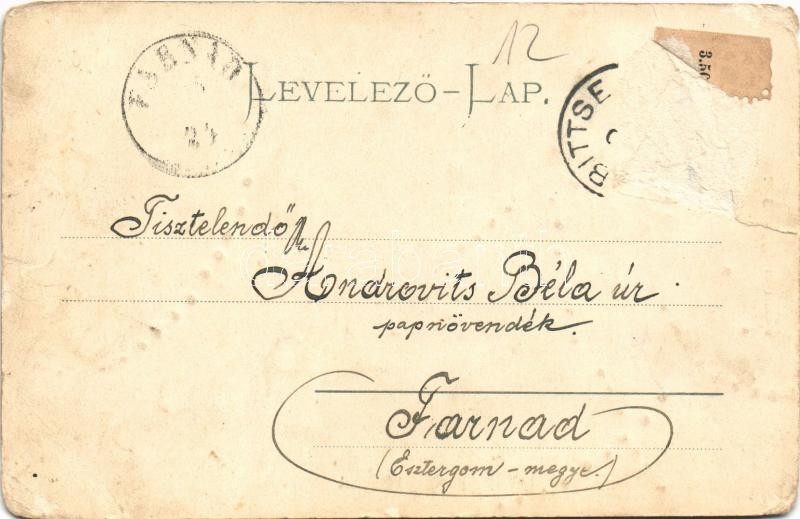 12
LEVELEZŐ-LAP.
FARNAD
24
BITTSE
3.50
Tisztelendő
Androvits Béla úr
papnövendék.
Farnad
(Esztergom-megye.)